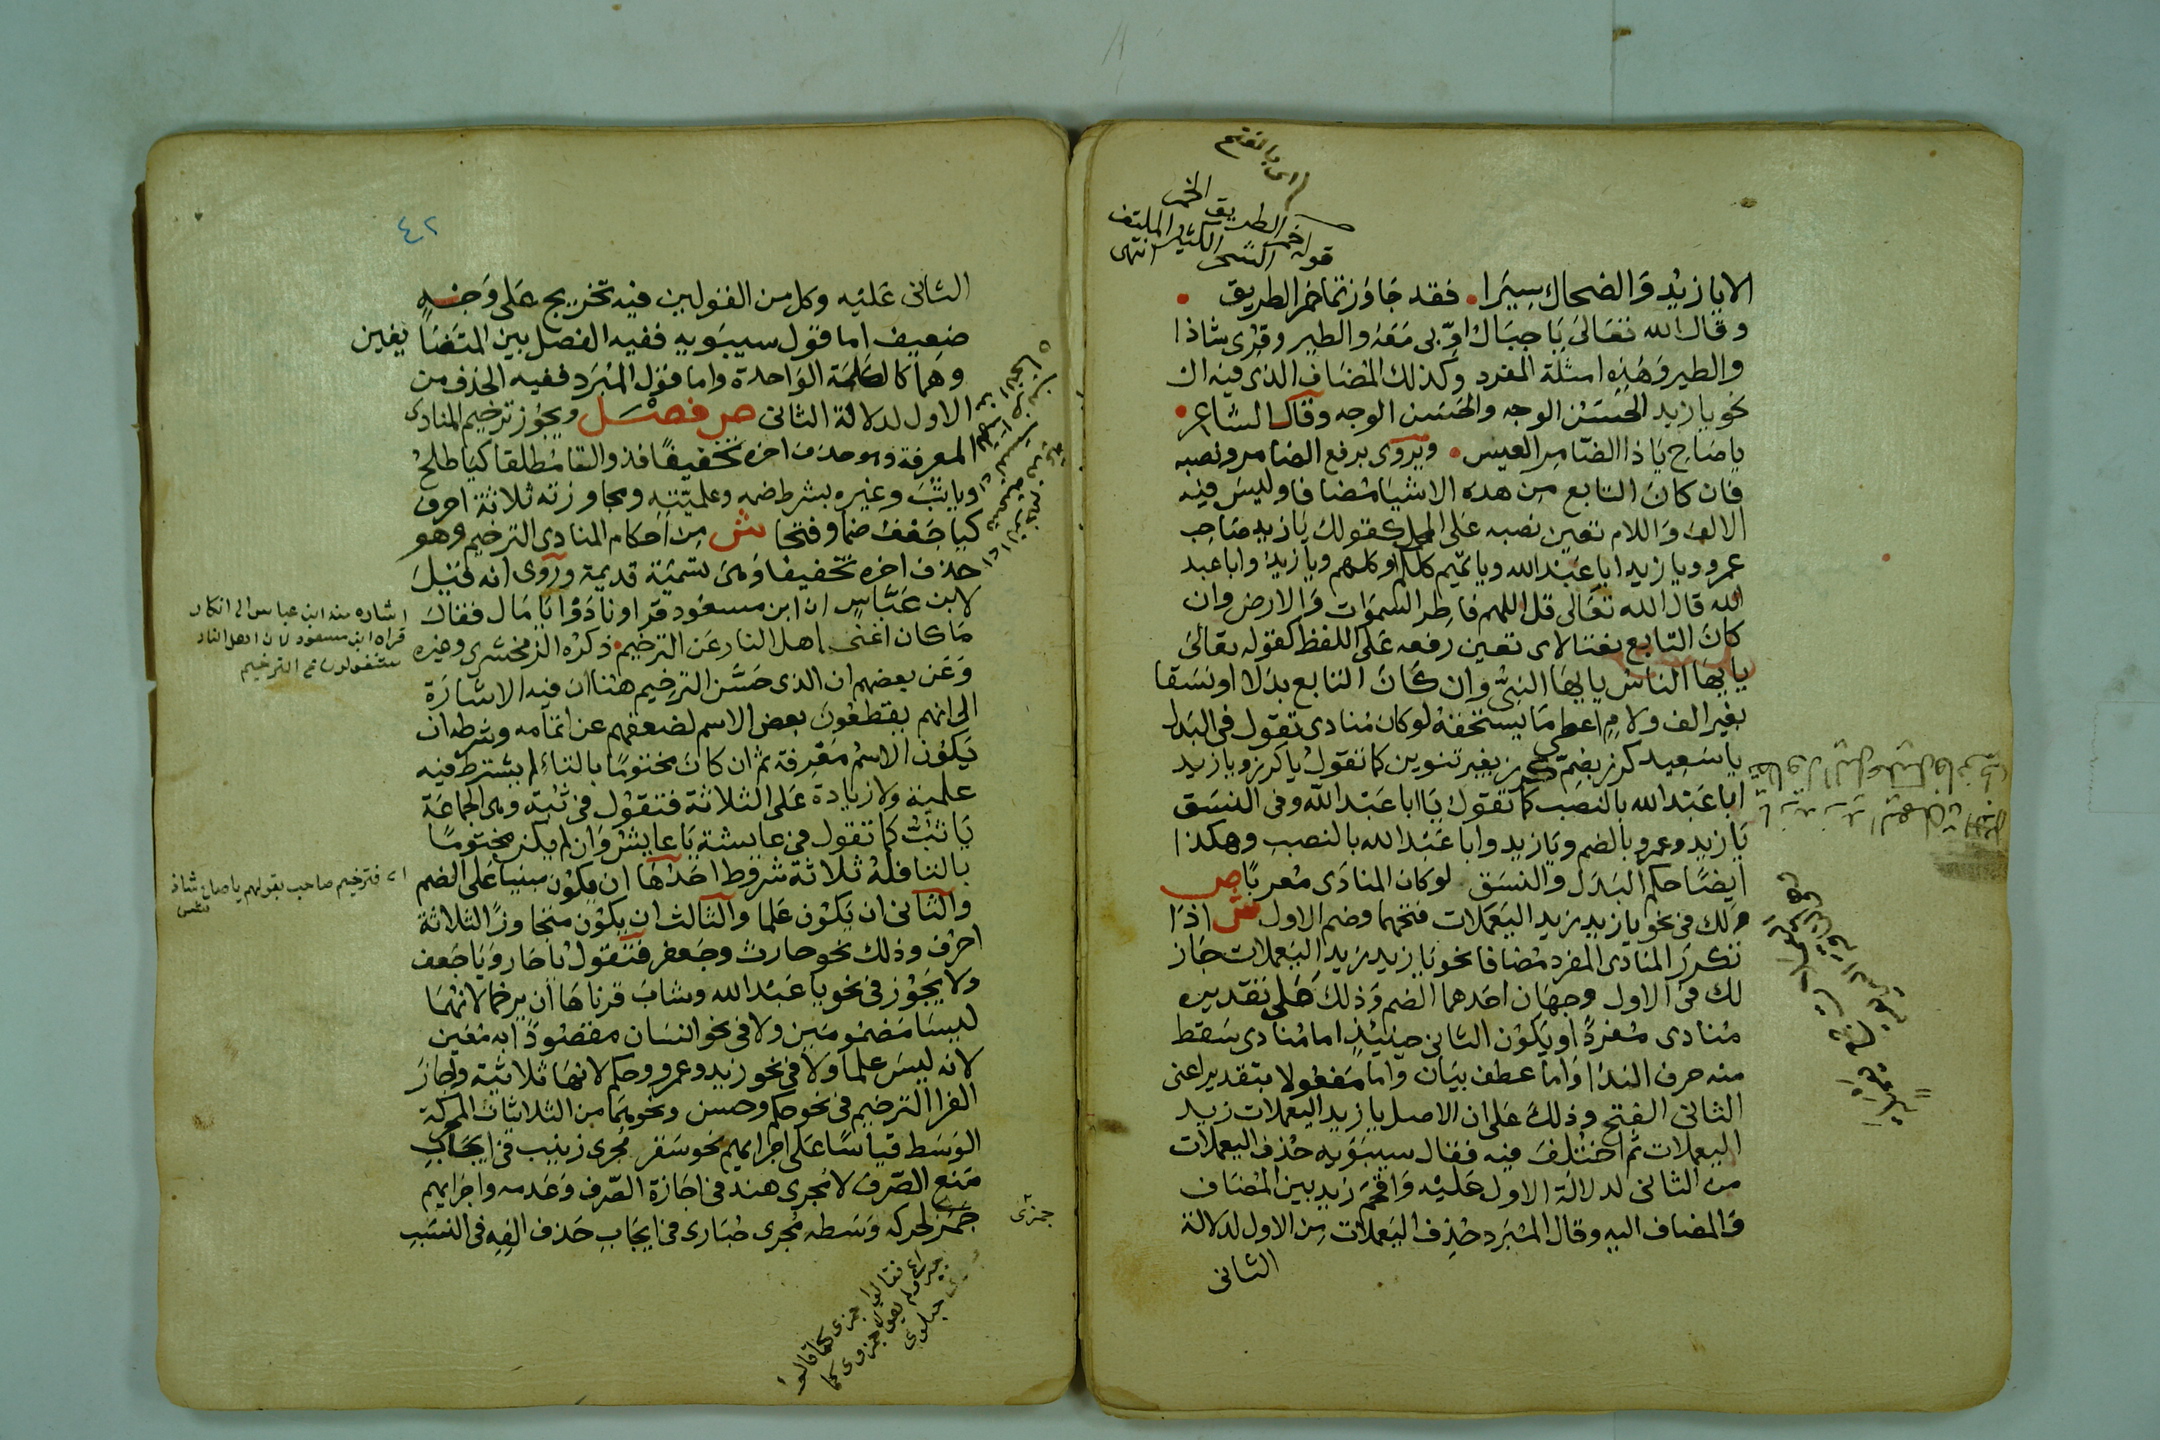 اى بالفتح
قوله خمر الطريق الخمر
الشجر الكثير الملتف
انتهى
الا يا زيد والضحاك سيرا . فقد جاوزتما خمر الطريق .
وقال الله تعالى يا جبال اوبى معه والطير وقرى شاذا
والطير وهذه امثلة المفرد وكذلك المضاف الذى فيه ال
نحو يا زيد الحسن الوجه والحسن الوجه وقال الشاعر .
يا صاح يا ذا الضامر العيس . ويروى برفع الضامر ونصبه
فان كان التابع من هذه الاشيا مضافا وليس فيه
الالف واللام تعين نصبه على المحل كقولك يا زيد صاحب
عمرو ويا زيد ابا عبد الله ويا تميم كلكم او كلهم ويا زيد وابا عبد
الله قال الله تعالى قل اللهم فاطر السموات والارض وان
كان التابع نعتا لاى تعين رفعه على اللفظ كقوله تعالى
يايها الناس يايها النبى وان كان التابع بدلا او نسقا
بغير الف ولام اعطى ما يستحقه لو كان منادى تقول فى البدل
يا سعيد كرز بضم كرز بغير تنوين كما تقول يا كرز ويا زيد
ابا عبد الله بالنصب كما تقول يا ابا عبد الله وفى النسق
يا زيد وعمرو بالضم ويا زيد وابا عبد الله بالنصب وهكذا
ايضا حكم البدل والنسق لو كان المنادى معربا ص
ولك فى نحو يا زيد زيد اليعملات فتحهما وضم الاول ش اذا
تكرر المنادى المفرد مضافا نحو يا زيد زيد اليعملات جاز
لك فى الاول وجهان احدهما الضم وذلك على تقديره
منادى مفردا ويكون الثانى حينيذ اما منادى سقط
منه حرف الندا واما عطف بيان واما مفعولا بتقدير اعنى
الثانى الفتح وذلك على ان الاصل يا زيد اليعملات زيد
اليعملات ثم اختلف فيه فقال سيبويه حذف اليعملات
من الثانى لدلالة الاول عليه واقحم زيد بين المضاف
والمضاف اليه وقال المبرد حذف اليعملات من الاول لدلالة
الثانى
٤٢
الثانى عليه وكل من القولين فيه تخريج على وجه
ضعيف اما قول سيبويه ففيه الفصل بين المتضايفين
وهما كالكلمة الواحدة واما قول المبرد ففيه الحذف من
الاول لدلالة الثانى ص فصل ويجوز ترخيم المنادى
المعرفة وهو حذف اخره تخفيفا فذو التا مطلقا كيا طلح
ويا ثب وغيره بشرط ضمه وعلميته ومجاوزته ثلاثة احرف
كيا جعف ضما وفتحا ش من احكام المنادى الترخيم وهو
حذف اخره تخفيفا وهى تسمية قديمة وروى انه قيل
لابن عباس ان ابن مسعود قرا ونادوا يا مال فقال
ما كان اغنى اهل النار عن الترخيم . ذكره الزمخشرى وغيره
وعن بعضهم ان الذى حسن الترخيم هنا ان فيه الاشارة
الى انهم يقتطعون بعض الاسم لضعفهم عن اتمامه وشرطه ان
يكون الاسم معرفة ثم ان كان مختوما بالتاء لم يشترط فيه
علمية ولا زيادة على الثلاثة فتقول فى ثبة وهى الجماعة
يا ثب كما تقول فى عايشة يا عايش وان لم يكن مختوما
بالتا فله ثلاثة شروط احدها ان يكون مبنيا على الضم
والثانى ان يكون علما والثالث ان يكون متجاوزا الثلاثة
احرف وذلك نحو حارث وجعفر فتقول يا حار ويا جعف
ولا يجوز فى نحو يا عبد الله وشاب قرناها ان يرخما لانهما
ليسا مضمومين ولا فى نحو انسان مقصودا به معين
لانه ليس علما ولا فى نحو زيد وعمرو وحكم لانها ثلاثية واجاز
الفرا الترخيم فى نحو حكم وحسن ونحوهما من الثلاثيات المحركة
الوسط قياسا على اجرايهم نحو سقر مجرى زينب فى ايجاب
منع الصرف لا مجرى هند فى اجازة الصرف وعدمه واجرايهم
جمزى لحركة وسطه مجرى حبارى فى ايجاب حذف الفه فى النسب
اشاره منه ابن عباس الى انكار
قراه ابن مسعود لان اهل النار
مشغولون عن الترخيم
اى فترخيم صاحب بقولهم يا صاح شاذ
جمزى
فقالوا جمزى كما قالوا
ولم يقولوا جمزوى كما
حبلوى